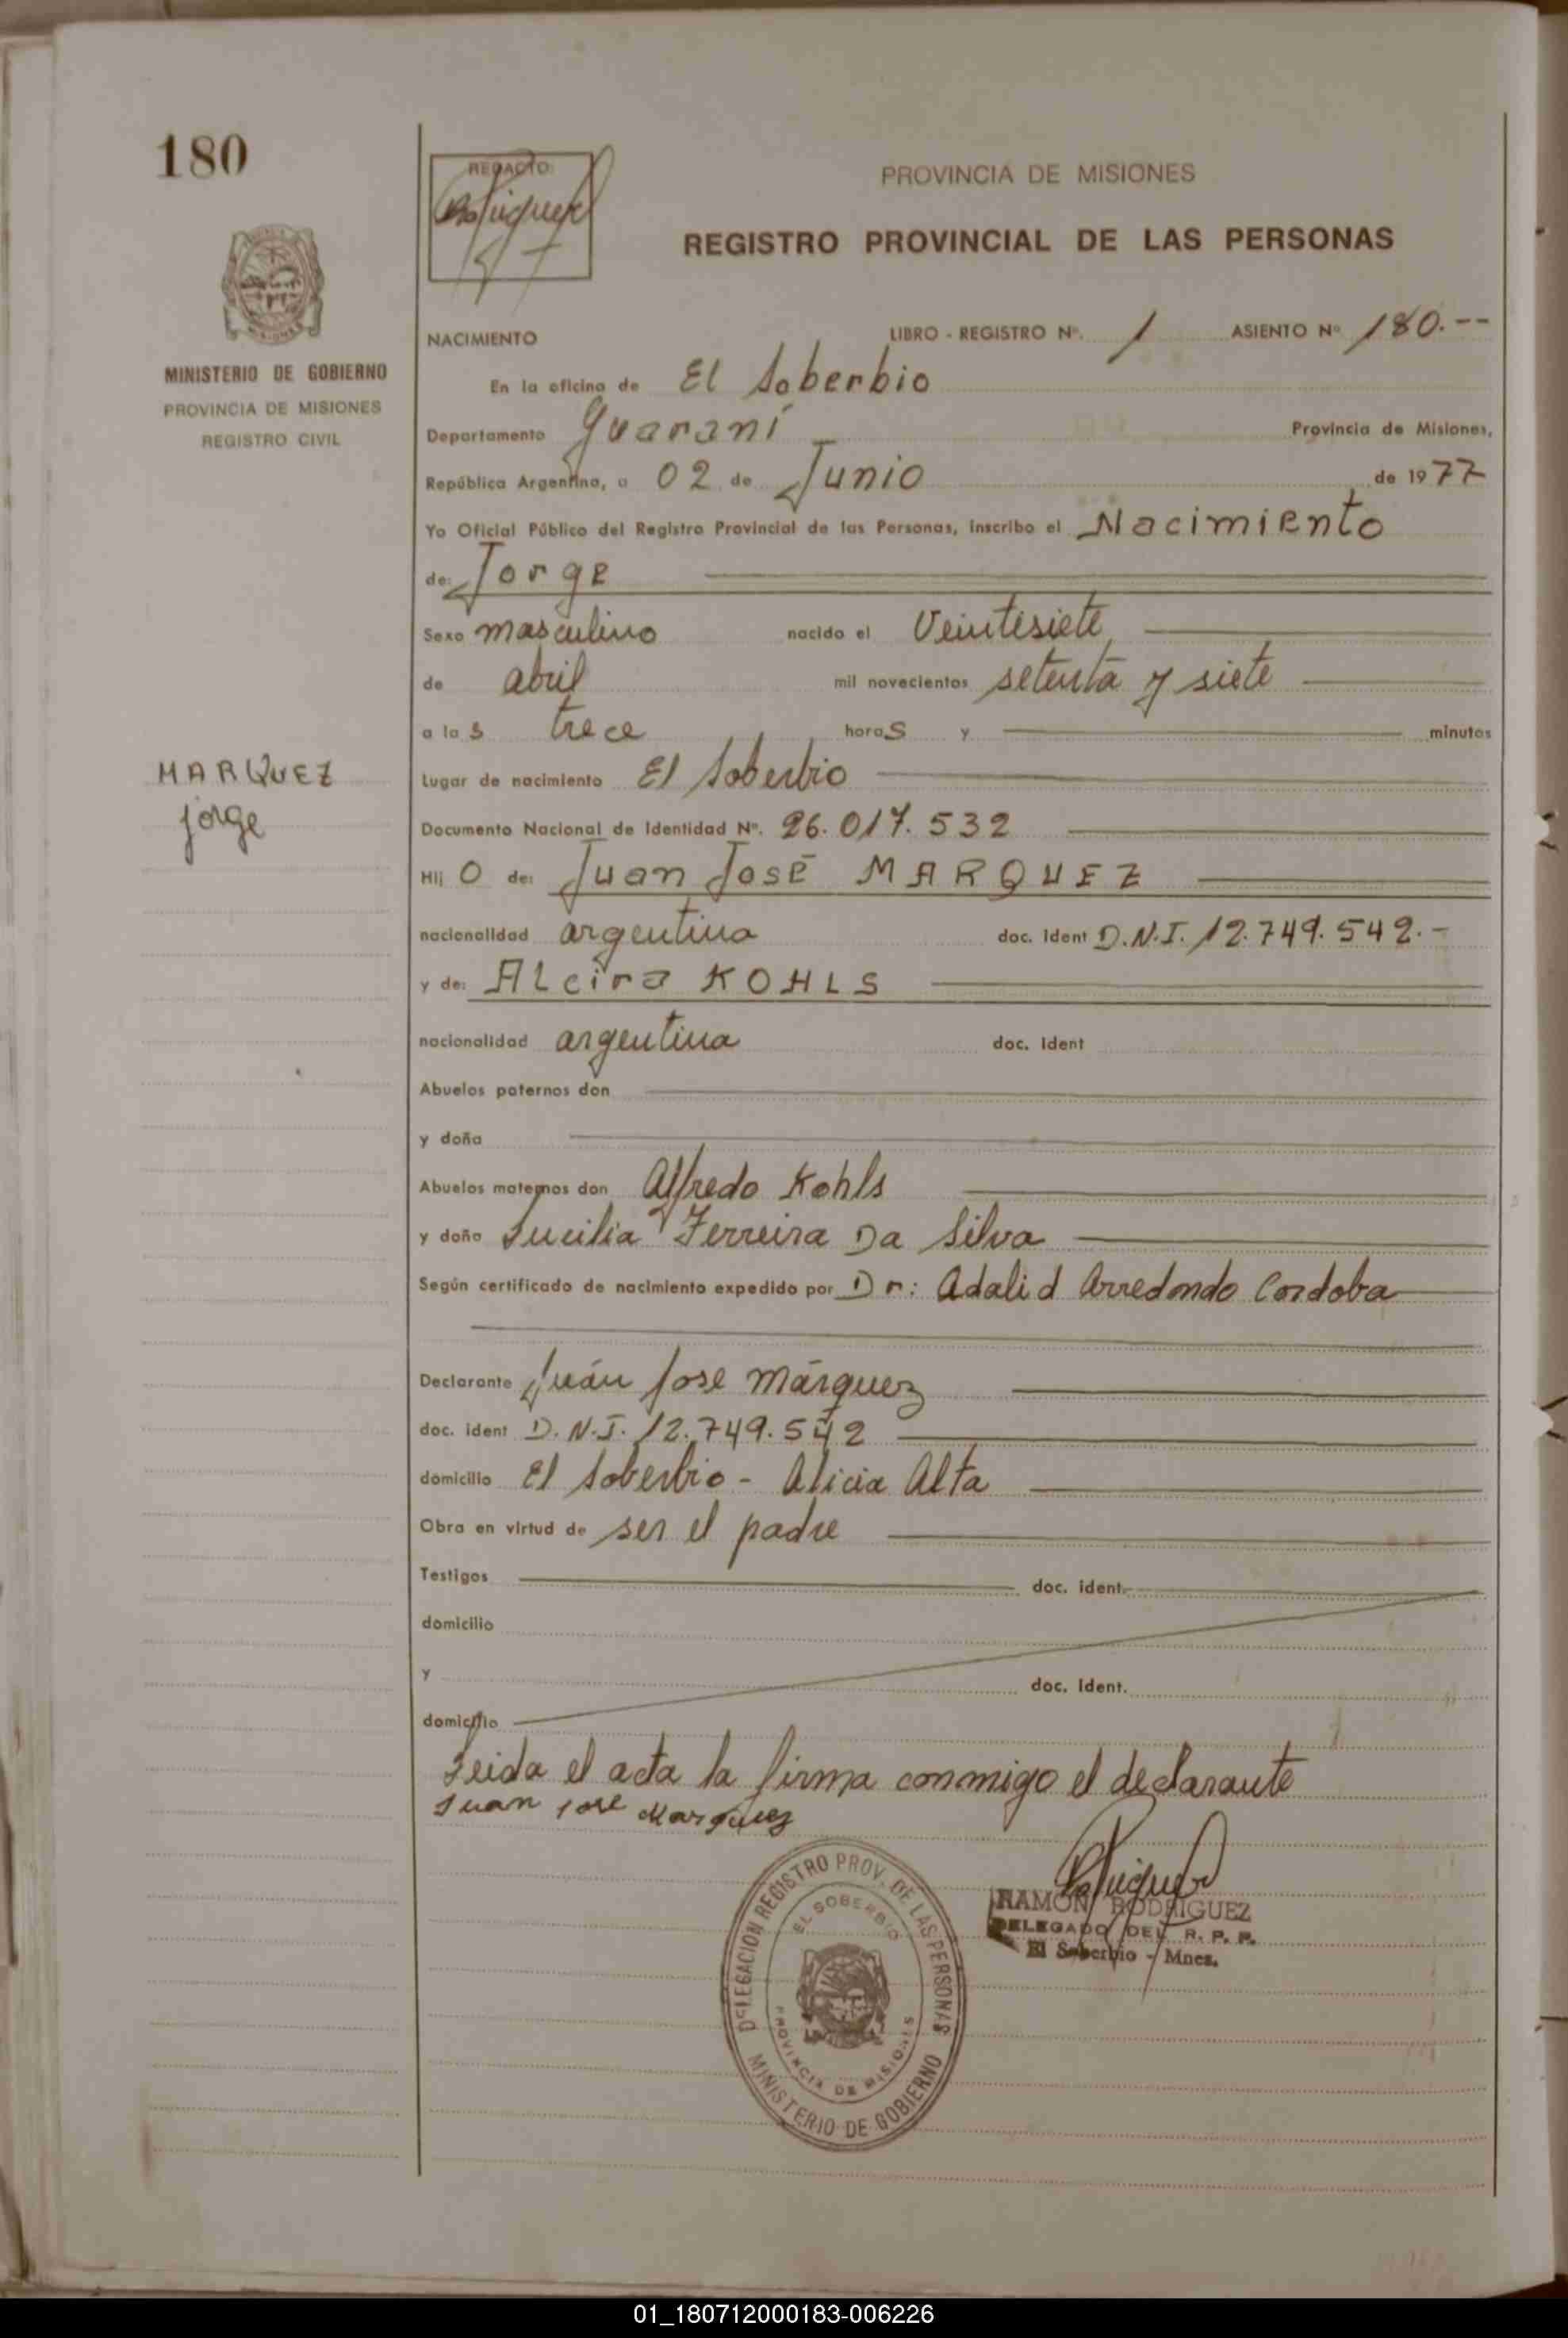 180
REDACTO:
PROVINCIA DE MISIONES
REGISTRO PROVINCIAL DE LAS PERSONAS
MINISTERIO DE GOBIERNO
PROVINCIA DE MISIONES
REGISTRO CIVIL
NACIMIENTO LIBRO - REGISTRO Nº. 1 ASIENTO Nº 180.--
En la oficina de El Soberbio
Departamento Guaraní Provincia de Misiones,
República Argentina, a 02 de Junio de 1977
Yo Oficial Público del Registro Provincial de las Personas, inscribo el Nacimiento
de: Jorge
Sexo masculino nacido el Veintesiete
de abril mil novecientos setenta y siete
a las trece horas y minutos
MARQUEZ
Jorge
Lugar de nacimiento El Soberbio
Documento Nacional de Identidad Nº. 26.017.532
Hijo de: Juan José MARQUEZ
nacionalidad argentina doc. ident D.N.I. 12.749.542.-
y de: ALcira KOHLS
nacionalidad argentina doc. ident
Abuelos paternos don
y doña
Abuelos maternos don Alfredo Kohls
y doña Lucilia Ferreira Da Silva
Según certificado de nacimiento expedido por Dr: Adalid Arredondo Cordoba
Declarante Juán Jose Márquez
doc. ident D.N.I. 12.749.542
domicilio El Soberbio - Alicia Alta
Obra en virtud de ser el padre
Testigos doc. ident.
domicilio
y doc. ident.
domicilio
Leida el acta la firma conmigo el declarante
Juan Jose Marquez
DELEGACION REGISTRO PROV. DE LAS PERSONAS
EL SOBERBIO
PROVINCIA DE MISIONES
MINISTERIO DE GOBIERNO
RAMON RODRIGUEZ
DELEGADO DEL R. P. P.
El Soberbio - Mnes.
01_180712000183-006226